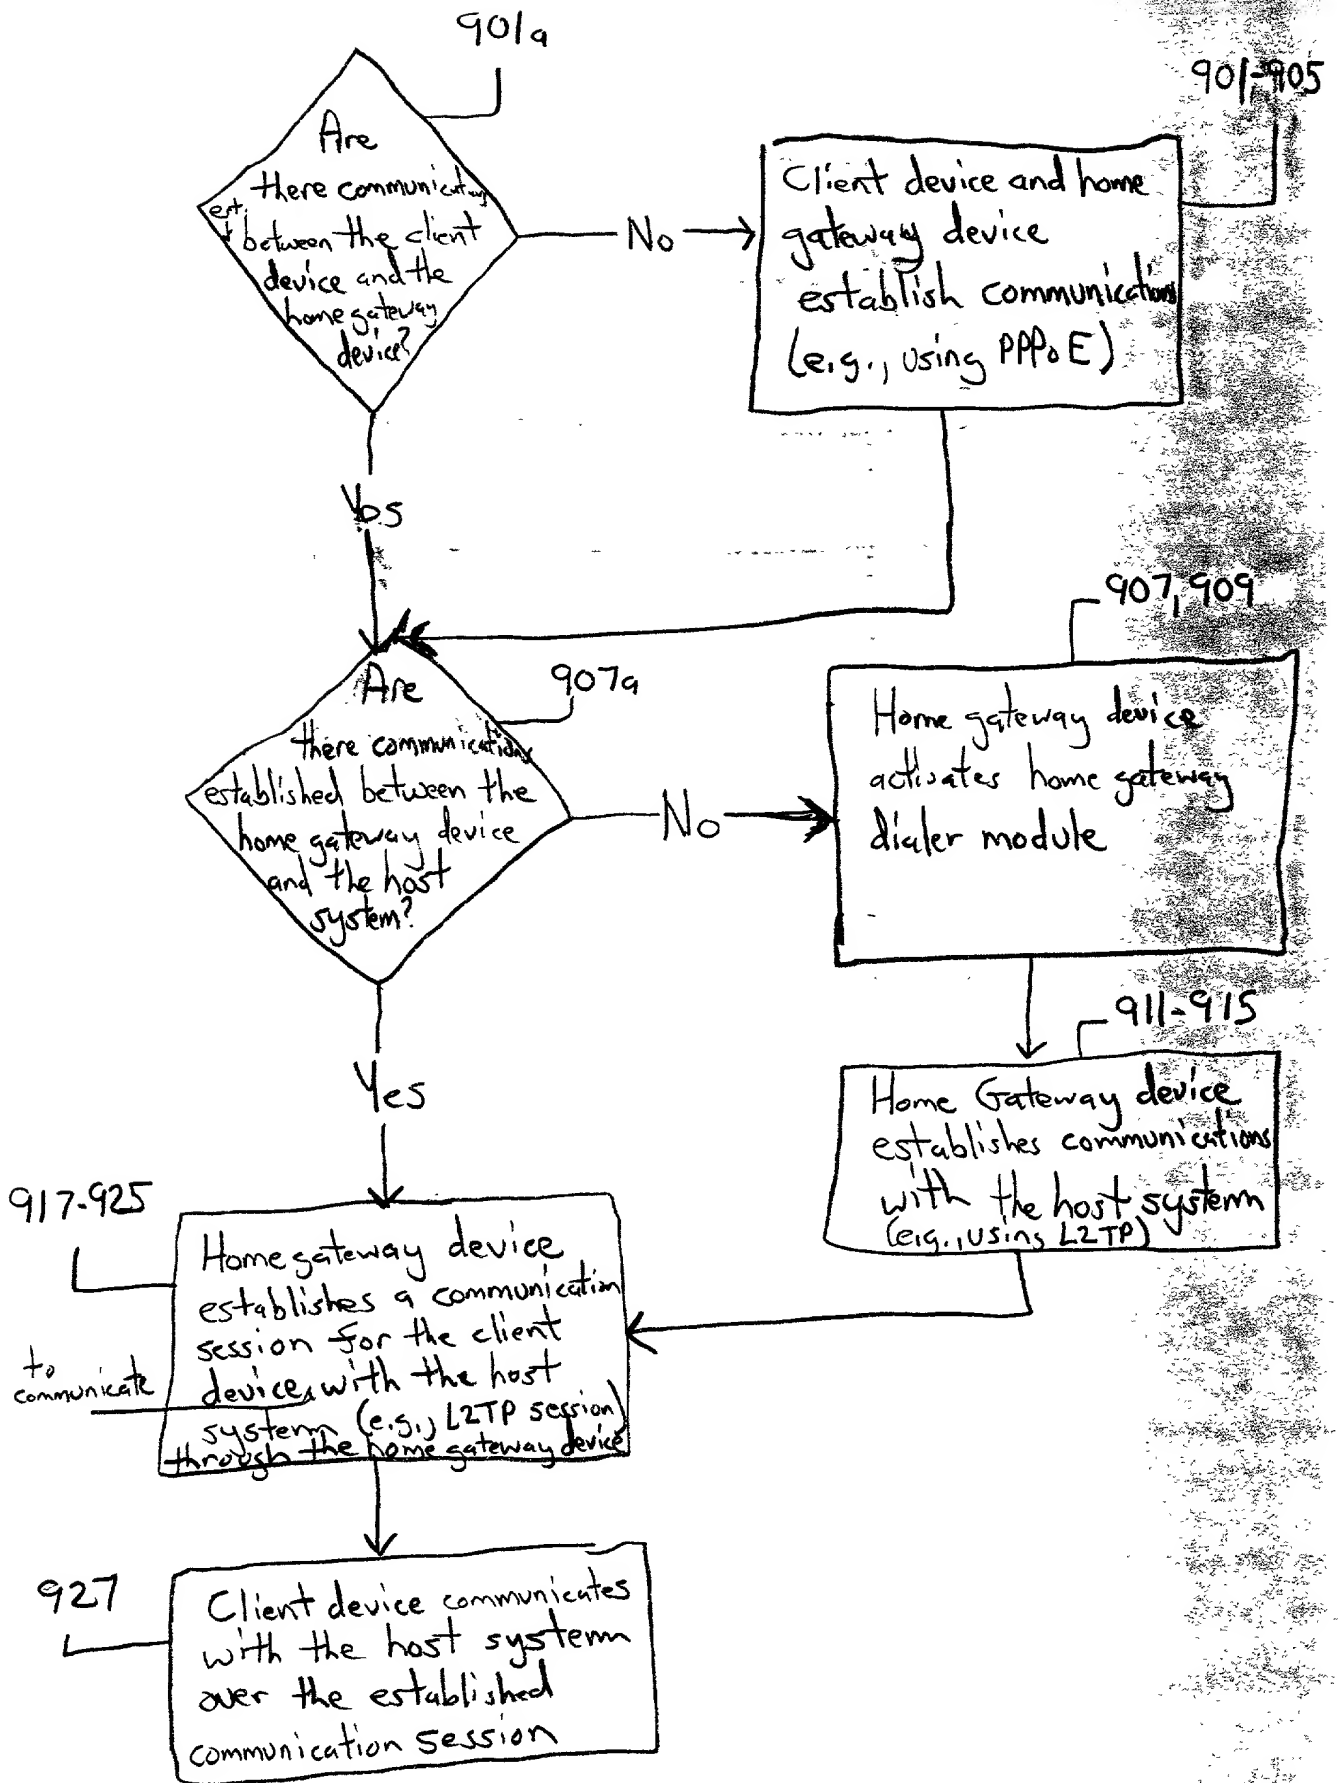 901a
Are
there communications
est.
between the client
device and the
home gateway
device?
No
901-905
Client device and home
gateway device
establish communications
(e.g., using PPPoE)
Yes
907a
Are
there communications
established between the
home gateway device
and the host
system?
No
907, 909
Home gateway device
activates home gateway
dialer module
Yes
911-915
Home Gateway device
establishes communications
with the host system
(e.g., using L2TP)
917-925
Home gateway device
establishes a communication
session for the client
to
communicate
device with the host
system (e.g., L2TP session)
through the home gateway device
927
Client device communicates
with the host system
over the established
communication session